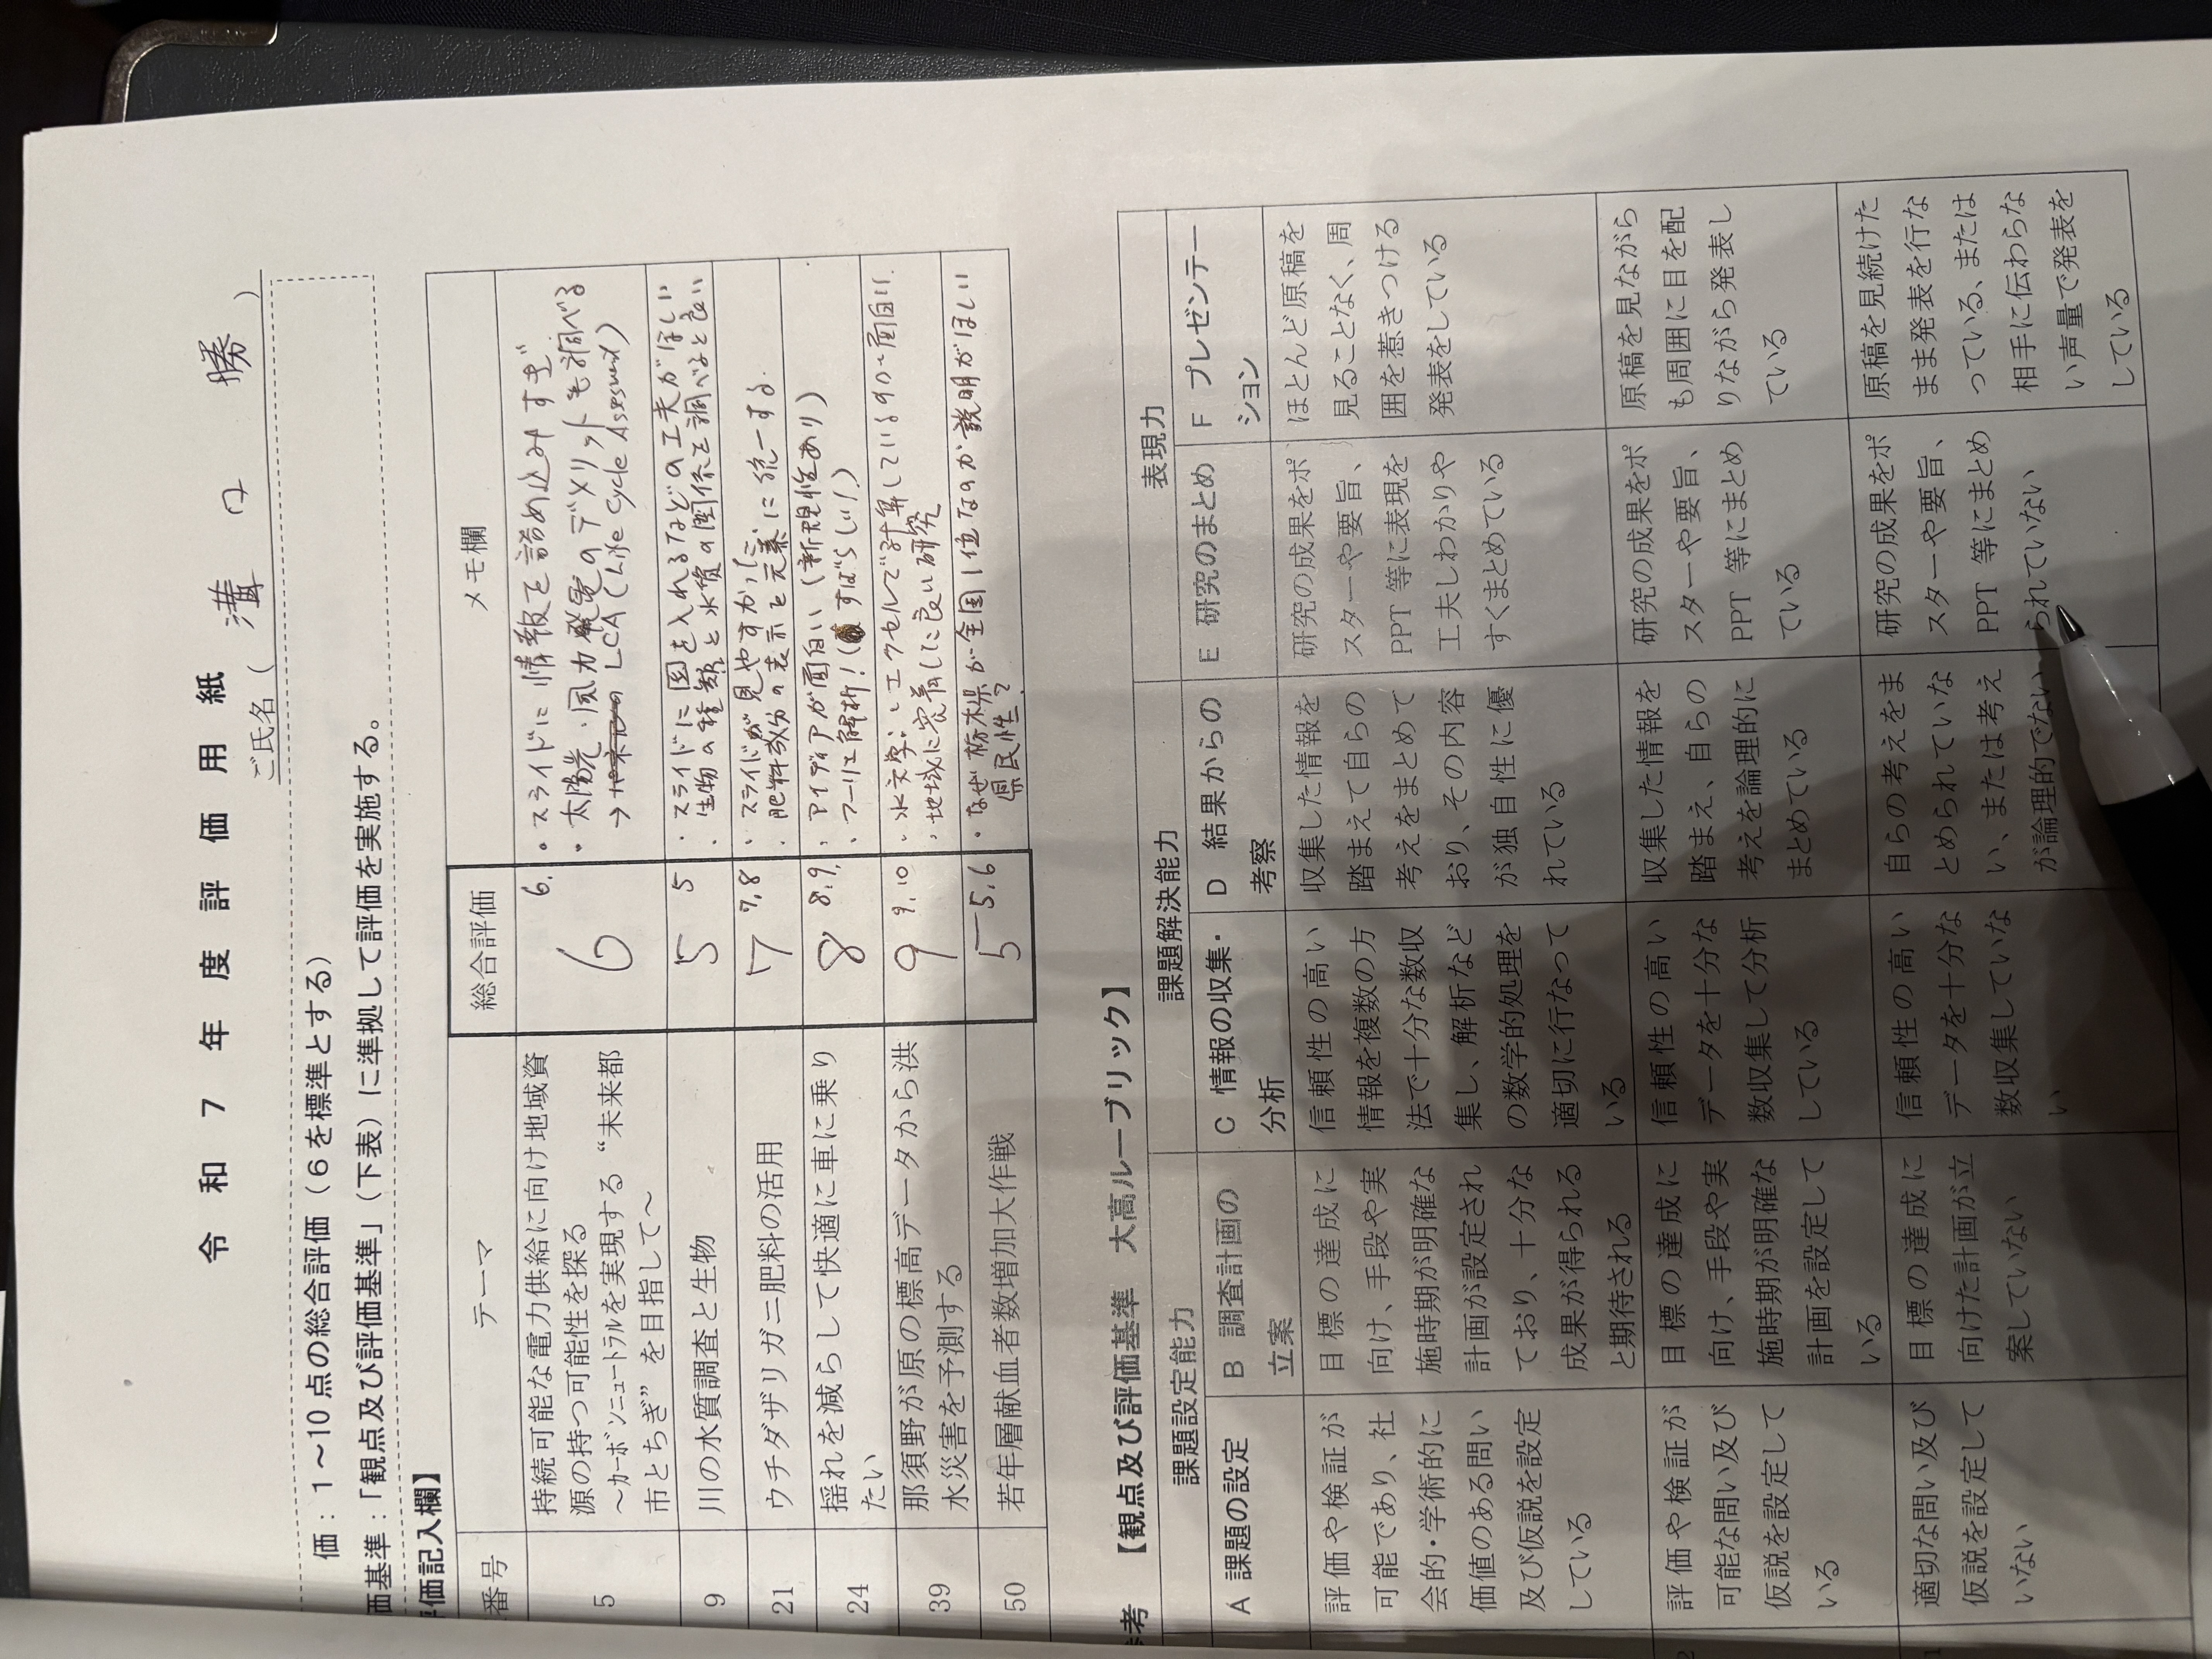 令和７年度評価用紙
ご氏名（ 溝口 勝 ）
価：１～10点の総合評価（６を標準とする）
価基準：「観点及び評価基準」（下表）に準拠して評価を実施する。
価記入欄】
番号 テーマ 総合評価 メモ欄
5
持続可能な電力供給に向け地域資
源の持つ可能性を探る
～カーボンニュートラルを実現する“未来都
市とちぎ”を目指して～
6 6.
・スライドに情報を詰め込みすぎ
・太陽光・風力発電のデメリットも調べる
→ LCA (Life Cycle Assessment)
9
川の水質調査と生物
5 5
・スライドに図を入れるなどの工夫がほしい
・生物の種類と水質の関係を調べると良い
21
ウチダザリガニ肥料の活用
7 7,8
・スライドが見やすかった
・肥料成分の表示を元素に統一する
24
揺れを減らして快適に車に乗り
たい
8 8.9.
・アイディアが面白い（新規性あり）
・フーリエ解析！（すばらしい）
39
那須野が原の標高データから洪
水災害を予測する
9 9.10
・水文学をエクセルで計算しているのが面白い
・地域に密着した良い研究
50
若年層献血者数増加大作戦
5 5.6
・なぜ栃木県が全国1位なのか説明がほしい
県民性？
考 【観点及び評価基準 大高ルーブリック】
課題設定能力 課題解決能力 表現力
A 課題の設定
B 調査計画の
立案
C 情報の収集・
分析
D 結果からの
考察
E 研究のまとめ
F プレゼンテー
ション
評価や検証が
可能であり、社
会的・学術的に
価値のある問い
及び仮説を設定
している
目標の達成に
向け、手段や実
施時期が明確な
計画が設定され
ており、十分な
成果が得られる
と期待される
信頼性の高い
情報を複数の方
法で十分な数収
集し、解析など
の数学的処理を
適切に行なって
いる
収集した情報を
踏まえて自らの
考えをまとめて
おり、その内容
が独自性に優
れている
研究の成果をポ
スターや要旨、
PPT 等に表現を
工夫しわかりや
すくまとめている
ほとんど原稿を
見ることなく、周
囲を惹きつける
発表をしている
2
評価や検証が
可能な問い及び
仮説を設定して
いる
目標の達成に
向け、手段や実
施時期が明確な
計画を設定して
いる
信頼性の高い
データを十分な
数収集して分析
している
収集した情報を
踏まえ、自らの
考えを論理的に
まとめている
研究の成果をポ
スターや要旨、
PPT 等にまとめ
ている
原稿を見ながら
も周囲に目を配
りながら発表し
ている
1
適切な問い及び
仮説を設定して
いない
目標の達成に
向けた計画が立
案していない
信頼性の高い
データを十分な
数収集していな
い
自らの考えをま
とめられていな
い、または考え
が論理的でない
研究の成果をポ
スターや要旨、
PPT 等にまとめ
られていない
原稿を見続けた
まま発表を行な
っている、または
相手に伝わらな
い声量で発表を
している